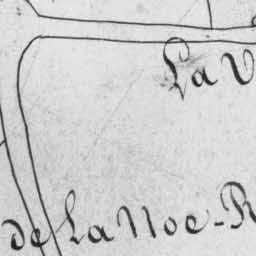 La V
de La Noe-R